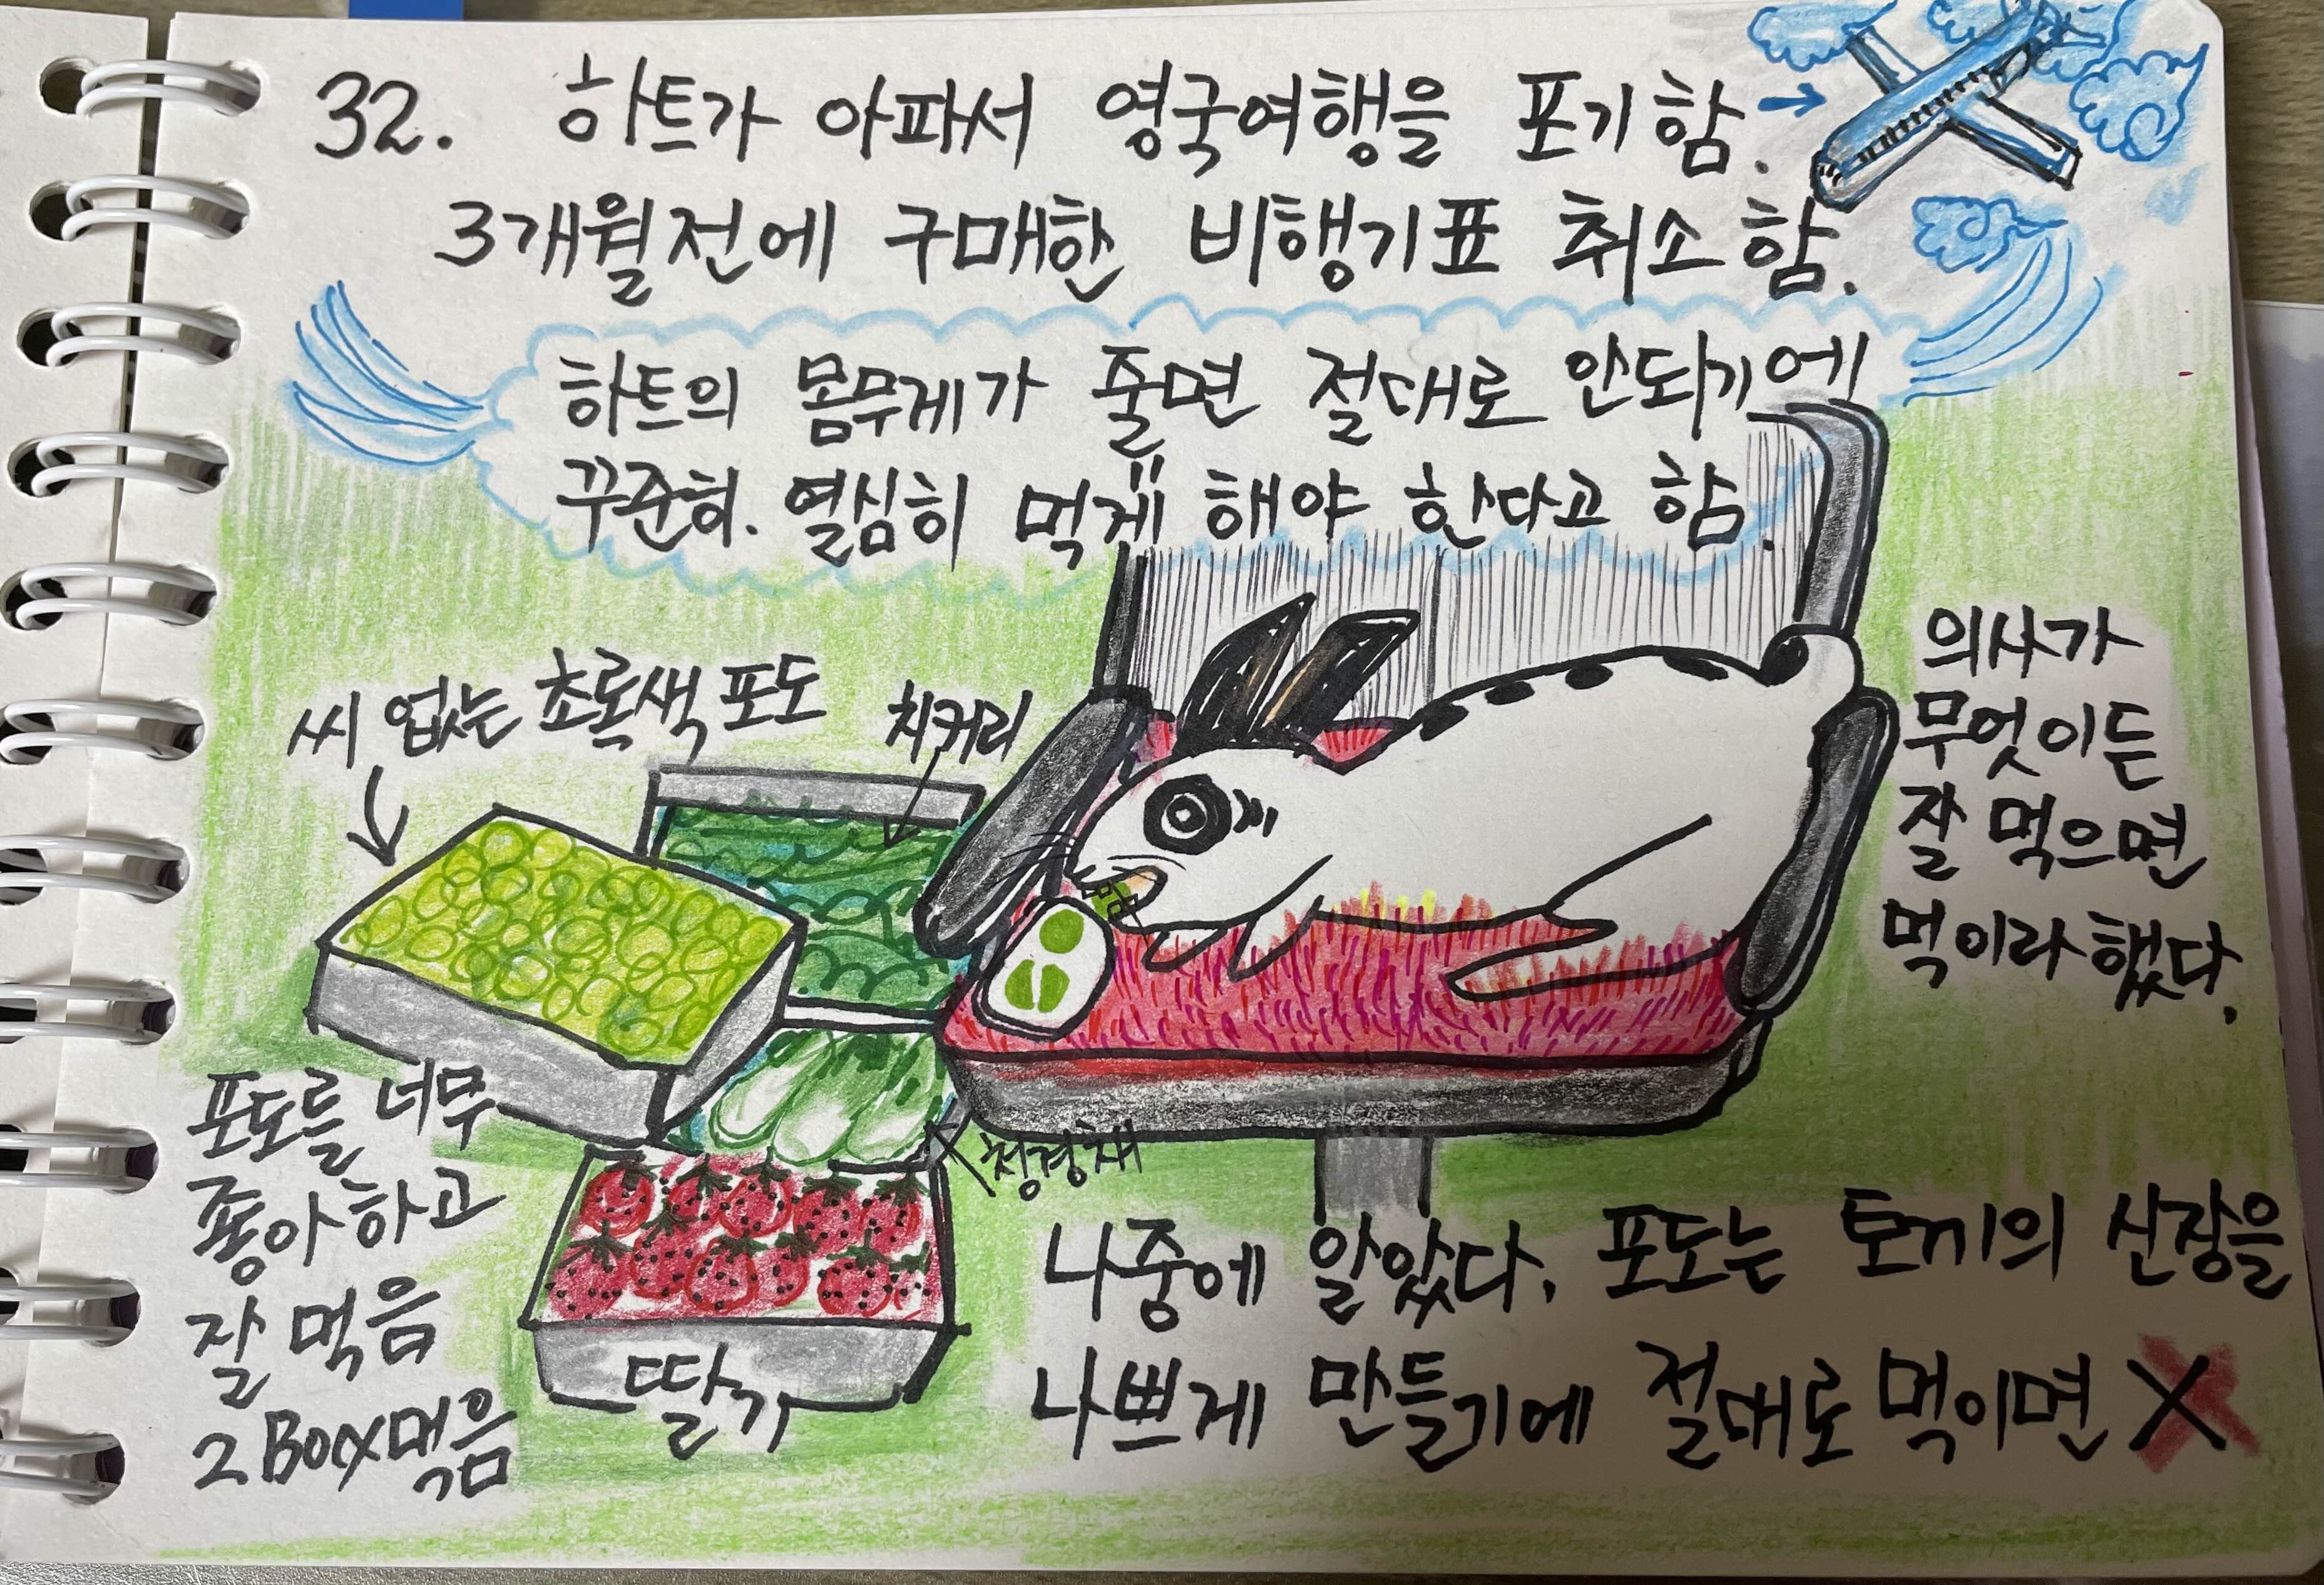 32. 하트가 아파서 영국여행을 포기함. →
3개월전에 구매한 비행기표 취소함.
하트의 몸무게가 줄면 절대로 안되기에
꾸준히. 열심히 먹게 해야 한다고 함.
씨 없는 초록색 포도
치커리
의사가
무엇이든
잘 먹으면
먹이라 했다.
포도를 너무
좋아하고
잘 먹음
2 Box 먹음
청경채
딸기
나중에 알았다. 포도는 토끼의 신장을
나쁘게 만들기에 절대로 먹이면 X